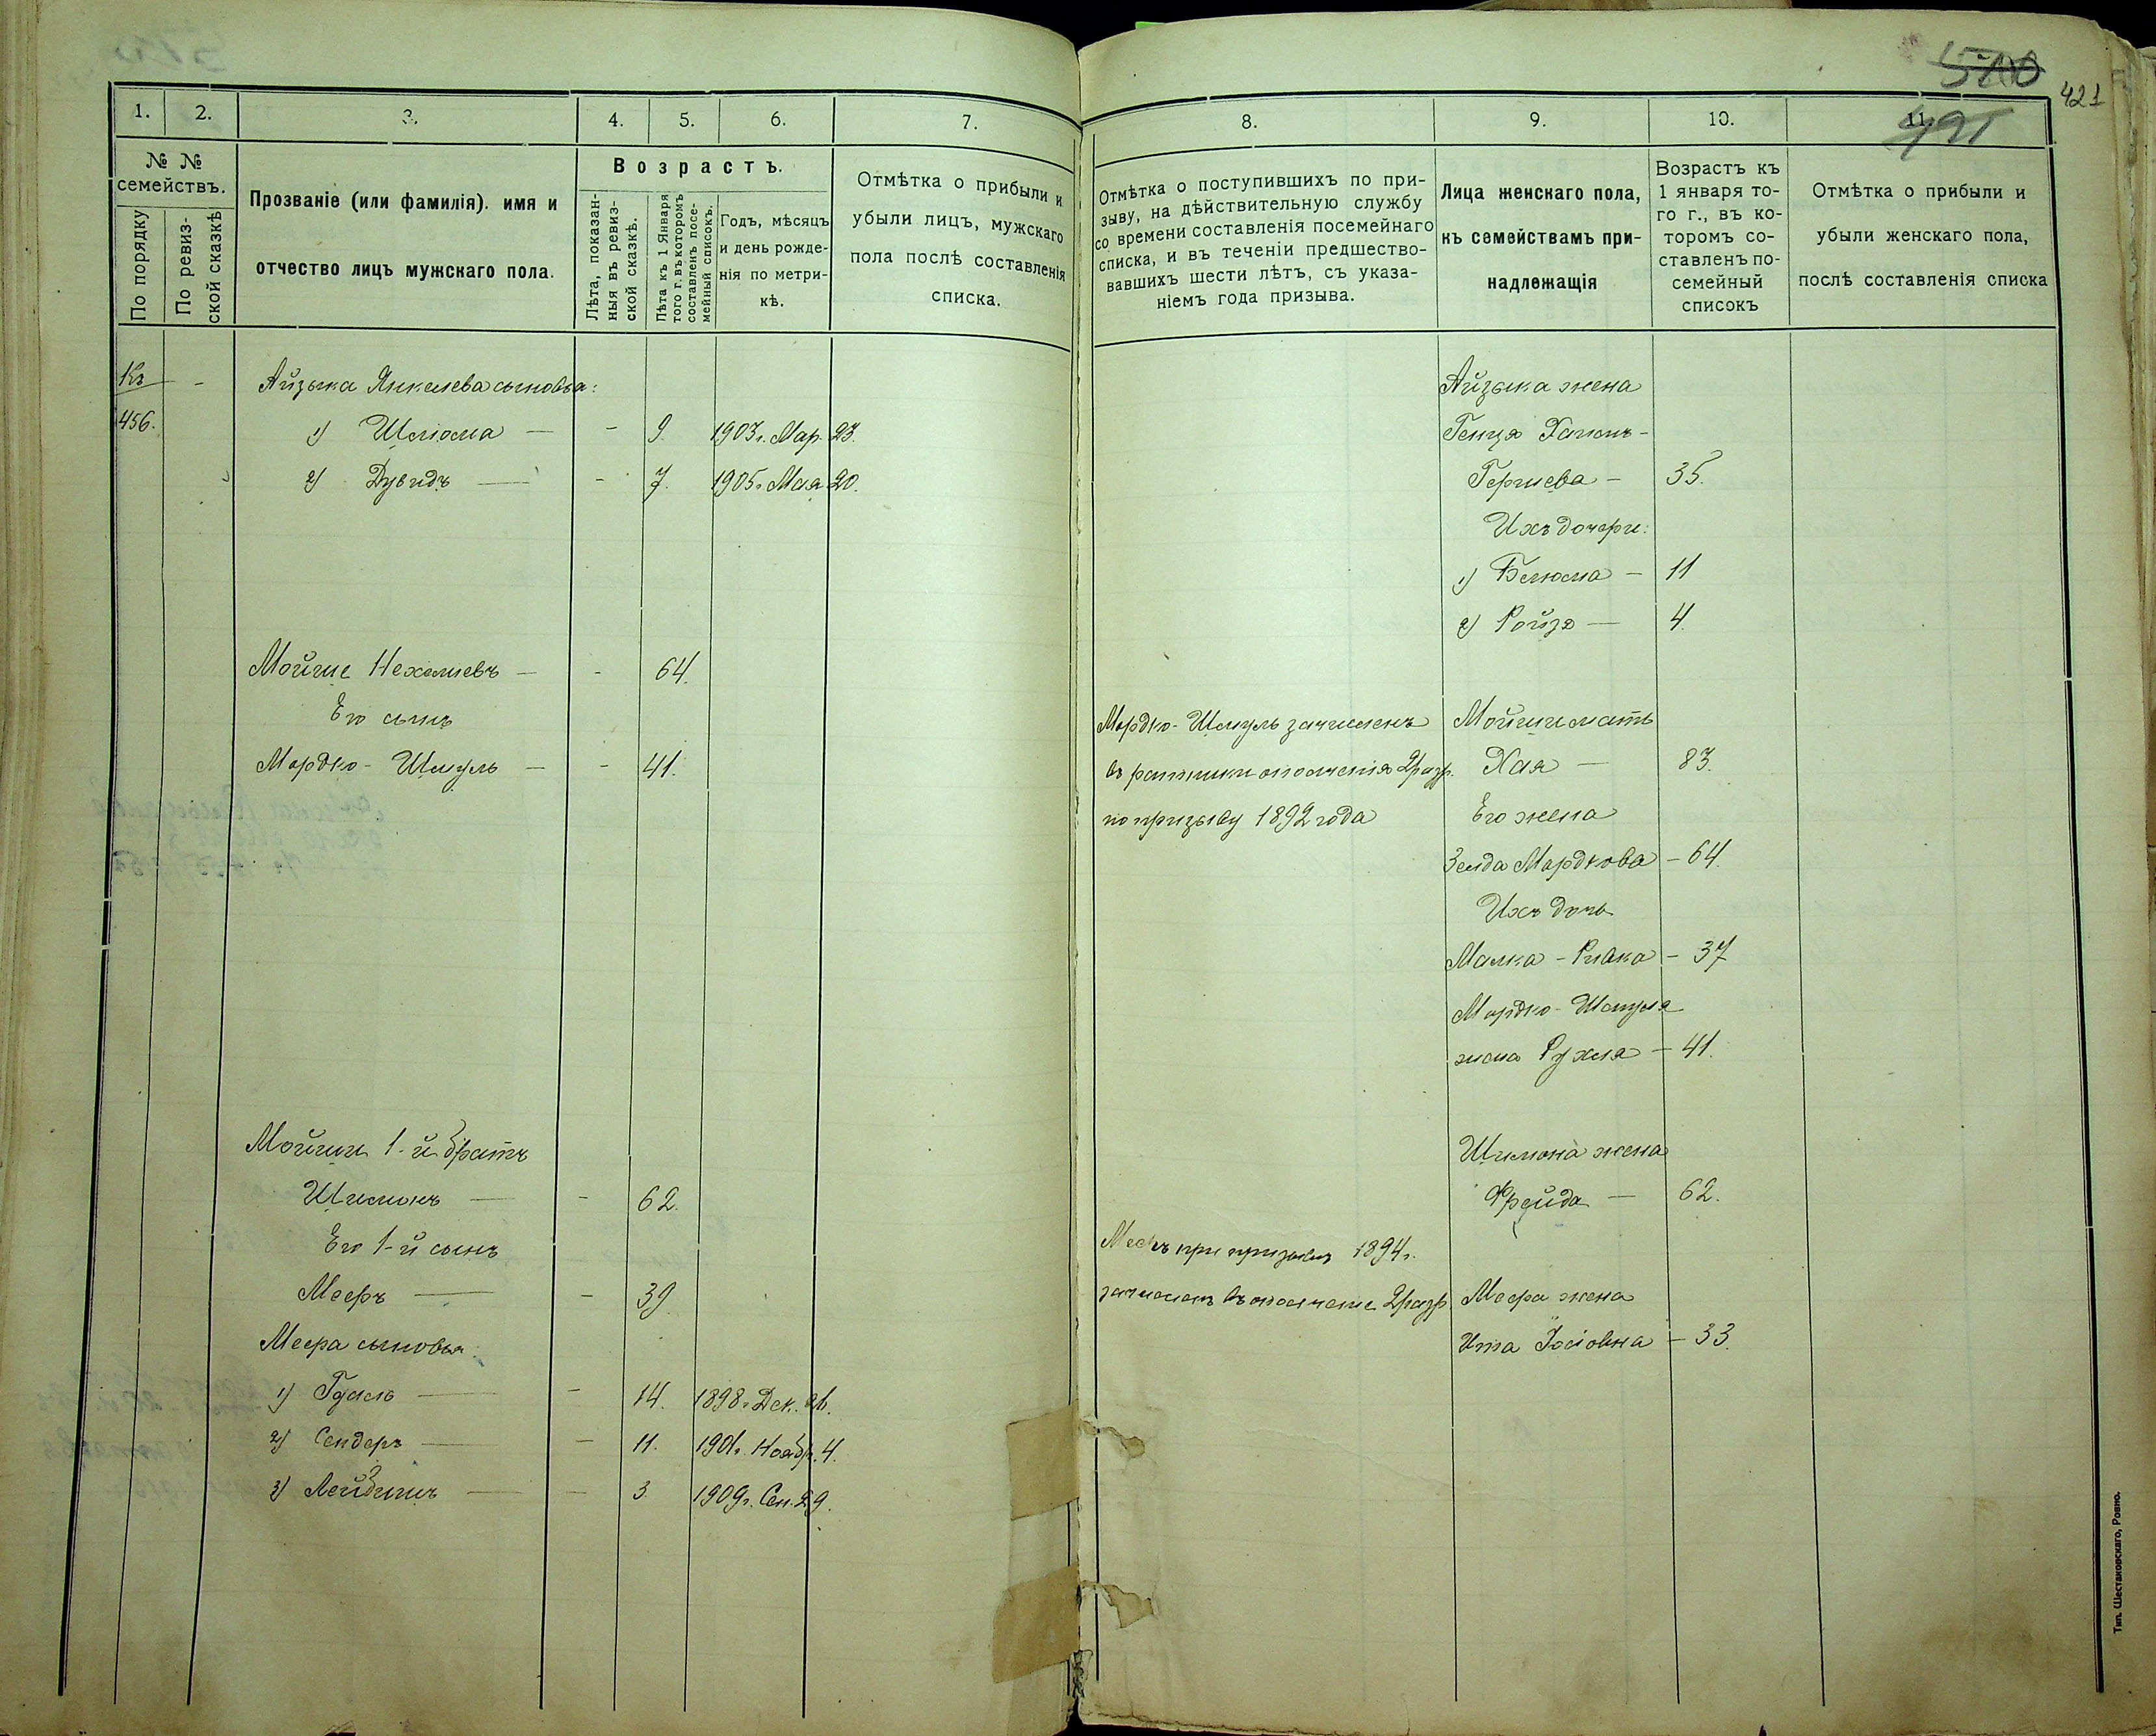 500
421
1. 2. 3. 4. 5. 6. 7.
№ № семействъ.
По порядку
По ревизской сказкѣ
Прозваніе (или фамилія). имя и
отчество лицъ мужскаго пола.
Возрастъ.
Лѣта, показан-
ныя въ ревиз-
ской сказкѣ.
Лѣта къ 1 Января
того г. въ которомъ
составленъ посе-
мейный списокъ.
Годъ, мѣсяцъ
и день рожде-
нія по метри-
кѣ.
Отмѣтка о прибыли и
убыли лицъ, мужскаго
пола послѣ составленія
списка.
Къ - Айзыка Янкелева сыновья:
456. 1) Шліома — - 9. 1903 г. Мар. 23.
2) Дувидъ — - 7. 1905 г. Мая 20.
Мойше Нехемievъ — - 64.
Его сынъ
Мордко-Шмуль — - 41.
Мойши 1-й братъ
Шимонъ — - 62.
Его 1-й сынъ
Мееръ — - 39.
Меера сыновья:
1) Гдаль — - 14. 1898 г. Дек.
2) Сендеръ — - 11. 1901 г. Ноябр. 4.
3) Лейбишъ — - 3. 1909 г. Сен. 29.
8. 9. 10. 11.
Отмѣтка о поступившихъ по при-
зыву, на дѣйствительную службу
со времени составленія посемейнаго
списка, и въ теченіи предшество-
вавшихъ шести лѣтъ, съ указа-
ніемъ года призыва.
Лица женскаго пола,
къ семействамъ при-
надлежащія
Возрастъ къ
1 января то-
го г., въ ко-
торомъ со-
ставленъ по-
семейный
списокъ
Отмѣтка о прибыли и
убыли женскаго пола,
послѣ составленія списка
Айзыка жена
Геншя Хаимъ-
Гершева — 35.
Ихъ дочери:
1) Блюма — 11
2) Ройзя — 4
Мордко-Шмуль зачисленъ Мойши мать
въ ратники ополченія 2 разр. Хая — 83.
по призыву 1892 года Его жена
Зелда Мордкова — 64.
Ихъ дочь
Малка-Ривка — 37
Мордко-Шмуля
жена Рухля — 41.
Шимона жена
Фрейда — 62.
при призывѣ 1894 г.
зачисленъ въ ополченіе 2 разр. Меера жена
Ита Іосіовна — 33.
Тип. Шестаковскаго, Ровно.